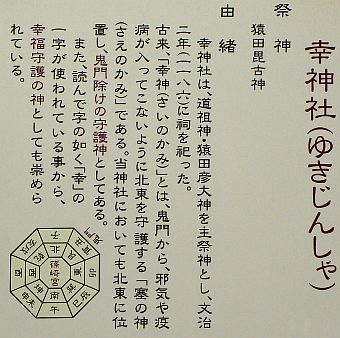 幸神社(ゆきじんしゃ)
祭神
猿田毘古神
由緒
幸神社は、道祖神・猿田彦大神を主祭神とし、文治
二年(一一八六)に祠を祀った。
古来、「幸神(さいのかみ)」とは、鬼門から、邪気や疫
病が入ってこないように北東を守護する「塞の神
(さえのかみ)」である。当神社においても北東に位
置し、鬼門除けの守護神としてある。
また、読んで字の如く「幸」の
一字が使われている事から、
幸福守護の神としても崇めら
れている。
鬼門
篠崎宮
北
東
南
西
乾
艮
巽
坤
子
丑寅
卯
辰巳
午
申未
酉
戌亥